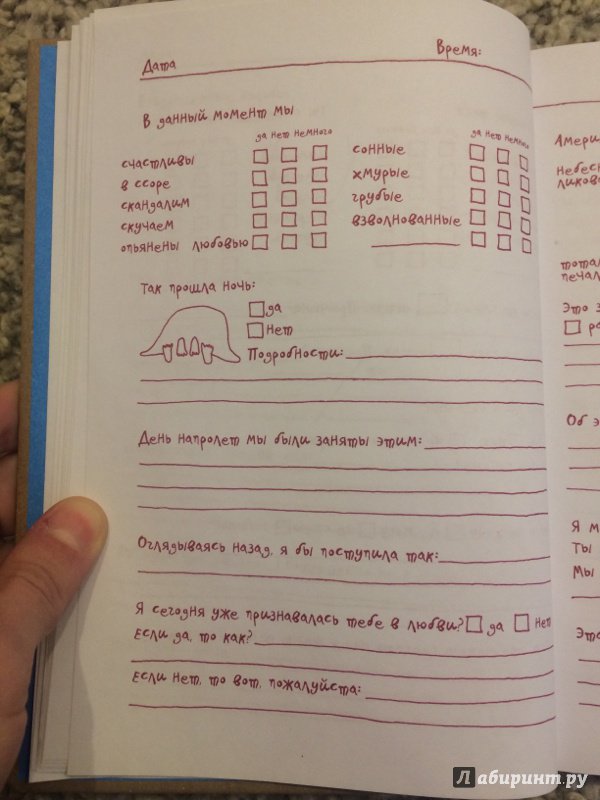 Дата Время:
В данный момент мы
да нет немного
да нет немного
счастливы
в ссоре
скандалим
скучаем
опьянены любовью
сонные
хмурые
грубые
взволнованные
Так прошла ночь:
да
нет
Подробности:
День напролет мы были заняты этим:
Оглядываясь назад, я бы поступила так:
Я сегодня уже признавалась тебе в любви? да нет
Если да, то как?
Если нет, то вот, пожалуйста:
Об
Я
Ты
Мы
Лабиринт.ру